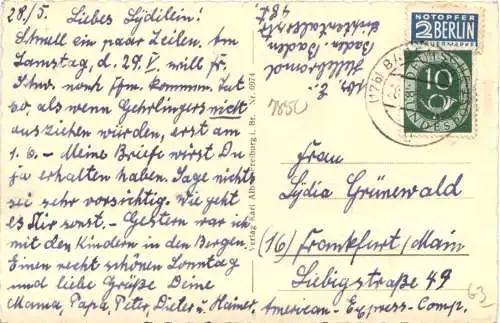 28./5. Liebes Lydilein!
Schnell ein paar Zeilen. Am
Samstag, d. 29. V. will fr.
noch Ffm. kommen. Tut
so, als wenn Gehrlingers nicht
ausziehen würden, erst am
1. 6. - Meine Briefe wirst Du
ja erhalten haben. Sage nichts
sei sehr vorsichtig. Wie geht
es Dir sonst. - Gestern war ich
mit den Kindern in den Bergen.
Einen recht schönen Sonntag
und liebe Grüße Deine
Mama, Papa, Peter, Dieter u. Rainer.
Verlag Karl Alber Freiburg i. Br. Nr.
Abs. E.
Hillebrand
Baden-Baden
Lichtentalerstr.
48 I
7850
NOTOPFER
2 BERLIN
STEUERMARKE
DEUTSCHE
BUNDESPOST
10
(17b) BA
Frau
Lydia Grünewald
(16) Frankfurt/Main
Liebigstraße 49
American-Express-Comp.
63